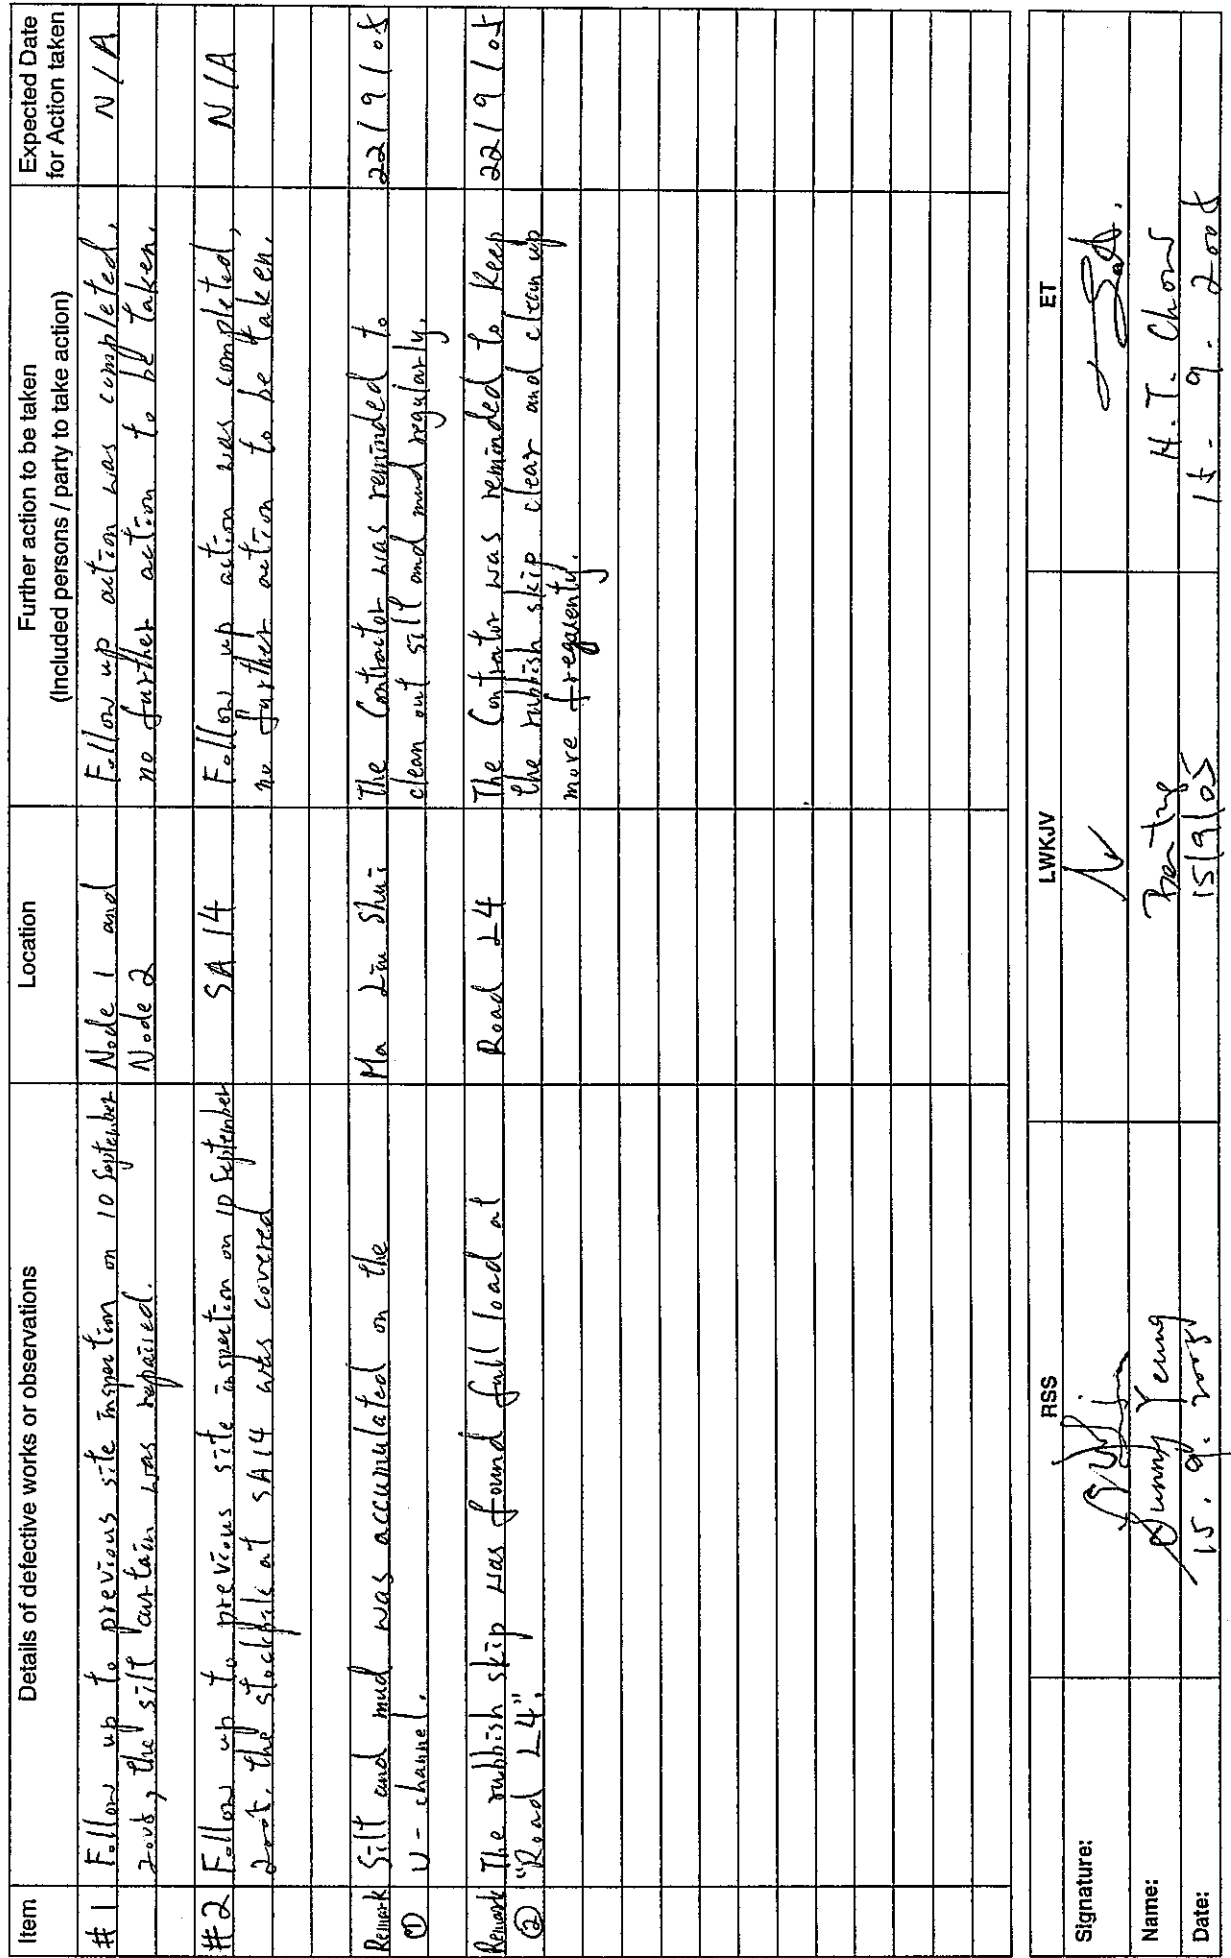 Item
Details of defective works or observations
Location
Further action to be taken
(Included persons / party to take action)
Expected Date
for Action taken
#1 Follow up to previous site inspection on 10 September
2005, the silt curtain was repaired.
Node 1 and
Node 2
Follow up action was completed,
no further action to be taken.
N/A
#2 Follow up to previous site inspection on 10 September
2005, the stockpile at SA14 was covered
SA 14
Follow up action was completed,
no further action to be taken.
N/A
Remark ①
Silt and mud was accumulated on the
U-channel.
Ma Liu Shui
The Contractor was reminded to
clean out silt and mud regularly.
22/9/05
Remark ②
The rubbish skip was found full load at
"Road L4".
Road L4
The Contrator was reminded to keep
the rubbish skip clear and clean up
more freqently.
22/9/05
RSS
LWKJV
ET
Signature:
Name:
Sunny Yeung
H.T. Chow
Date:
15. 9. 2005
15/9/05
15 - 9. 2005